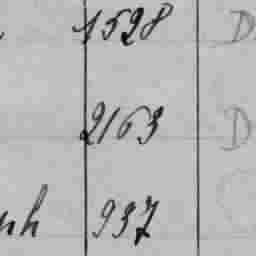 1528 D
2163 D
nh 937